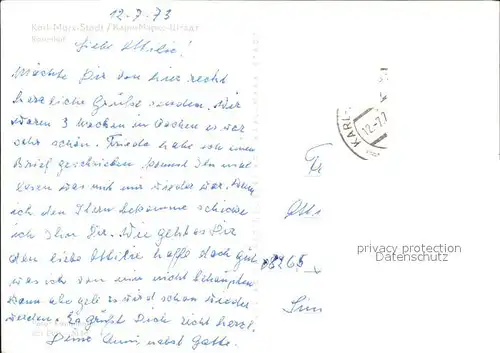 12-7-73
Karl-Marx-Stadt / Карл-Маркс-Штадт
Liebe Ottilie!
Möchte Dir von hier recht
herzliche Grüße senden. Wir
waren 3 Wochen in Aachen es war
sehr schön. Frieda habe ich einen
Brief geschrieben kannst Ihn mal
lesen was mit mir wieder war. Wenn
ich den Ihren bekomme schicke
ich Ihn Dir. Wie geht es Dir
den liebe Ottilie hoffe doch gut
was ich von mir nicht behaupten
kann aber geb es wird schon wieder
werden. Es grüßt Dich recht herzl.
Deine Anni nebst Gatte.
KARL-
12.-7.7
Fr
Otti
8265
Sim
privacy protection
Datenschutz